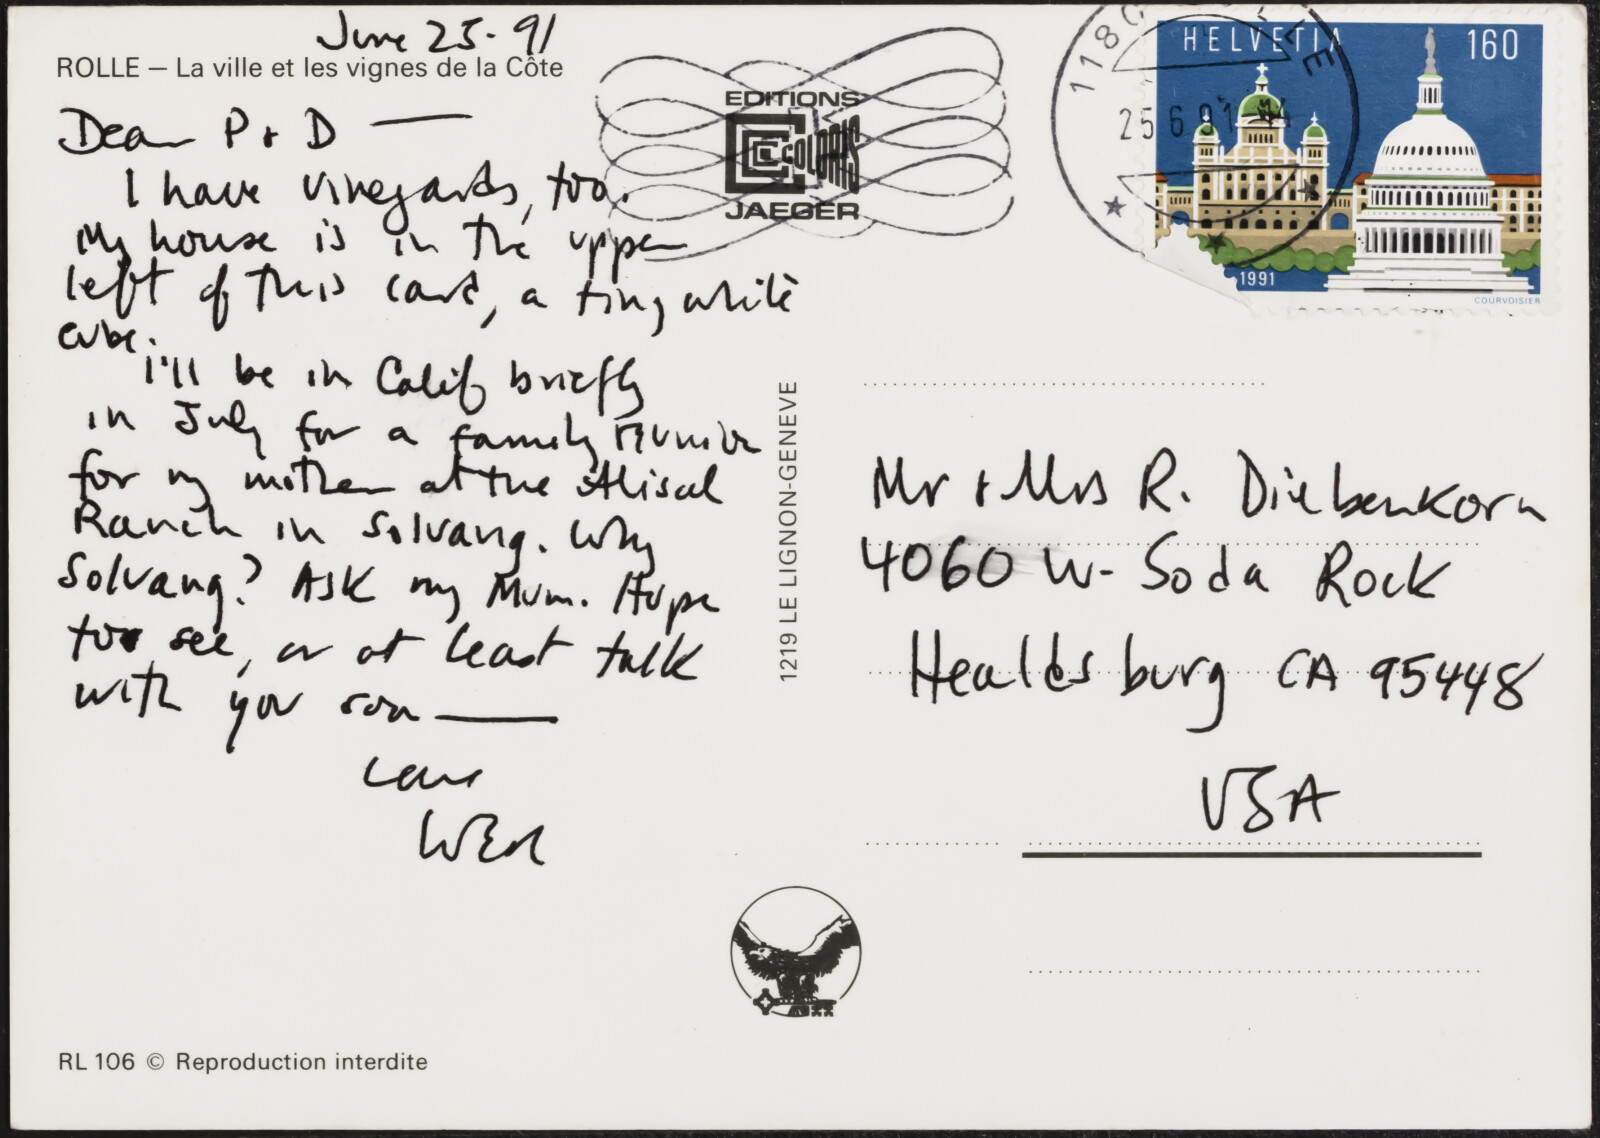 June 25-91
ROLLE – La ville et les vignes de la Côte
Dear P + D —
I have vineyards, too.
My house is in the upper
left of this card, a tiny white
cube.
I'll be in Calif briefly
in July for a family reunion
for my mother at the Alisal
Ranch in Solvang. Why
Solvang? Ask my Mum. Hope
to see, or at least talk
with you soon —
Love
EDITIONS
COLORIS
JAEGER
1219 LE LIGNON-GENEVE
RL 106 © Reproduction interdite
HELVETIA 160
1180 ROLLE
25.6.91
1991
COURVOISIER
Mr + Mrs R. Diebenkorn
4060 W. Soda Rock
Healdsburg CA 95448
USA